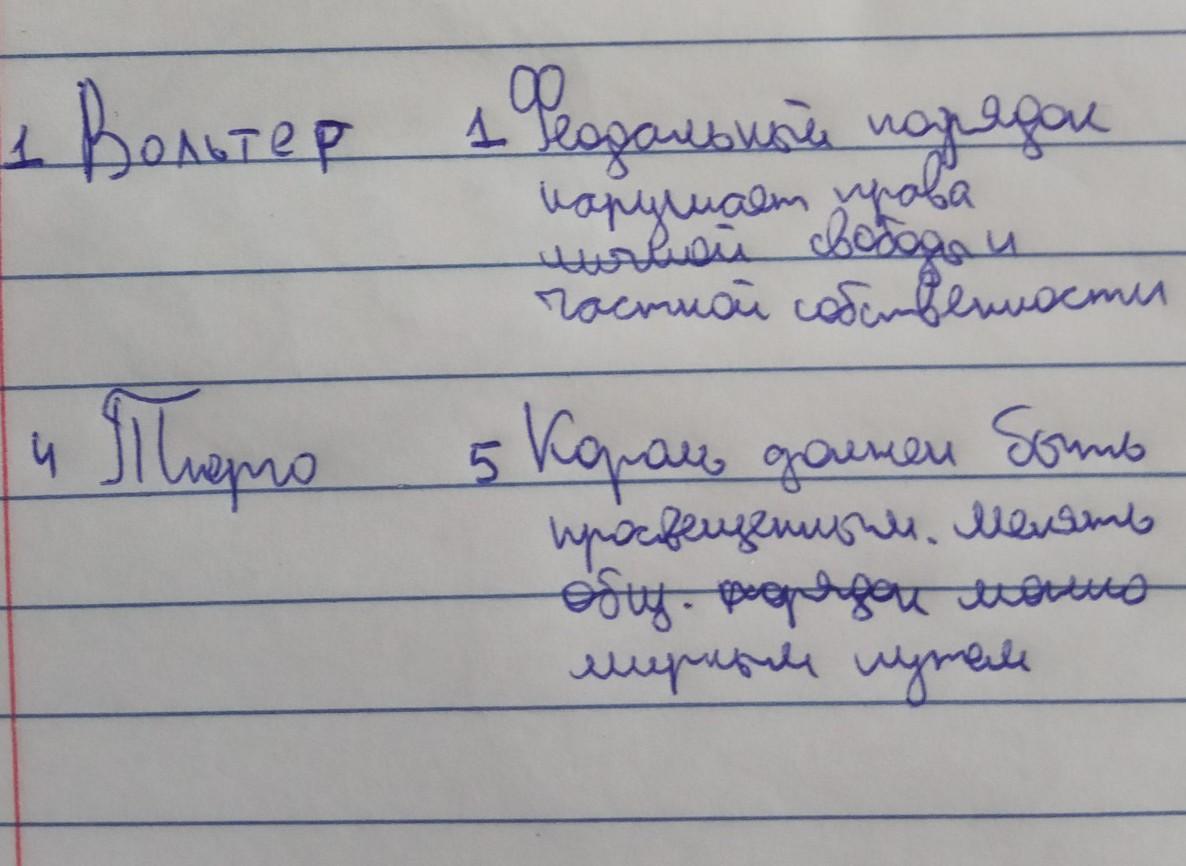 1 Вольтер 1 Феодальный порядок
нарушает права
личной свободы и
частной собственности
4 Тюрго 5 Король должен быть
просвещенным. Менять
общ. порядок можно
мирным путем